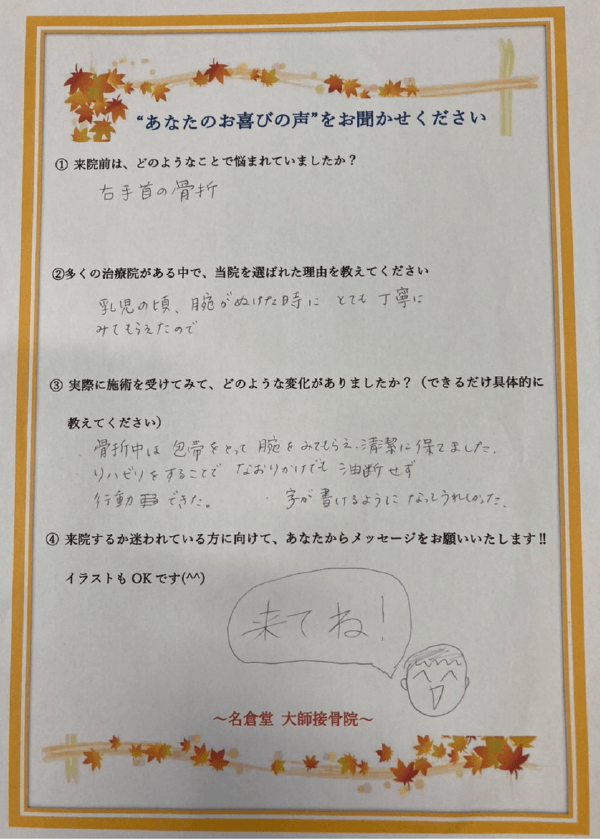 “あなたのお喜びの声”をお聞かせください
① 来院前は、どのようなことで悩まれていましたか？
右手首の骨折
②多くの治療院がある中で、当院を選ばれた理由を教えてください
乳児の頃、腕がぬけた時に とても丁寧に
みてもらえたので
③ 実際に施術を受けてみて、どのような変化がありましたか？（できるだけ具体的に
教えてください）
・骨折中は包帯をとって腕をみてもらえ、清潔に保てました。
リハビリをすることで なおりかけでも油断せず
行動できた。 ・字が書けるようになってうれしかった。
④ 来院するか迷われている方に向けて、あなたからメッセージをお願いいたします!!
イラストも OK です(^^)
来てね！
～名倉堂 大師接骨院～